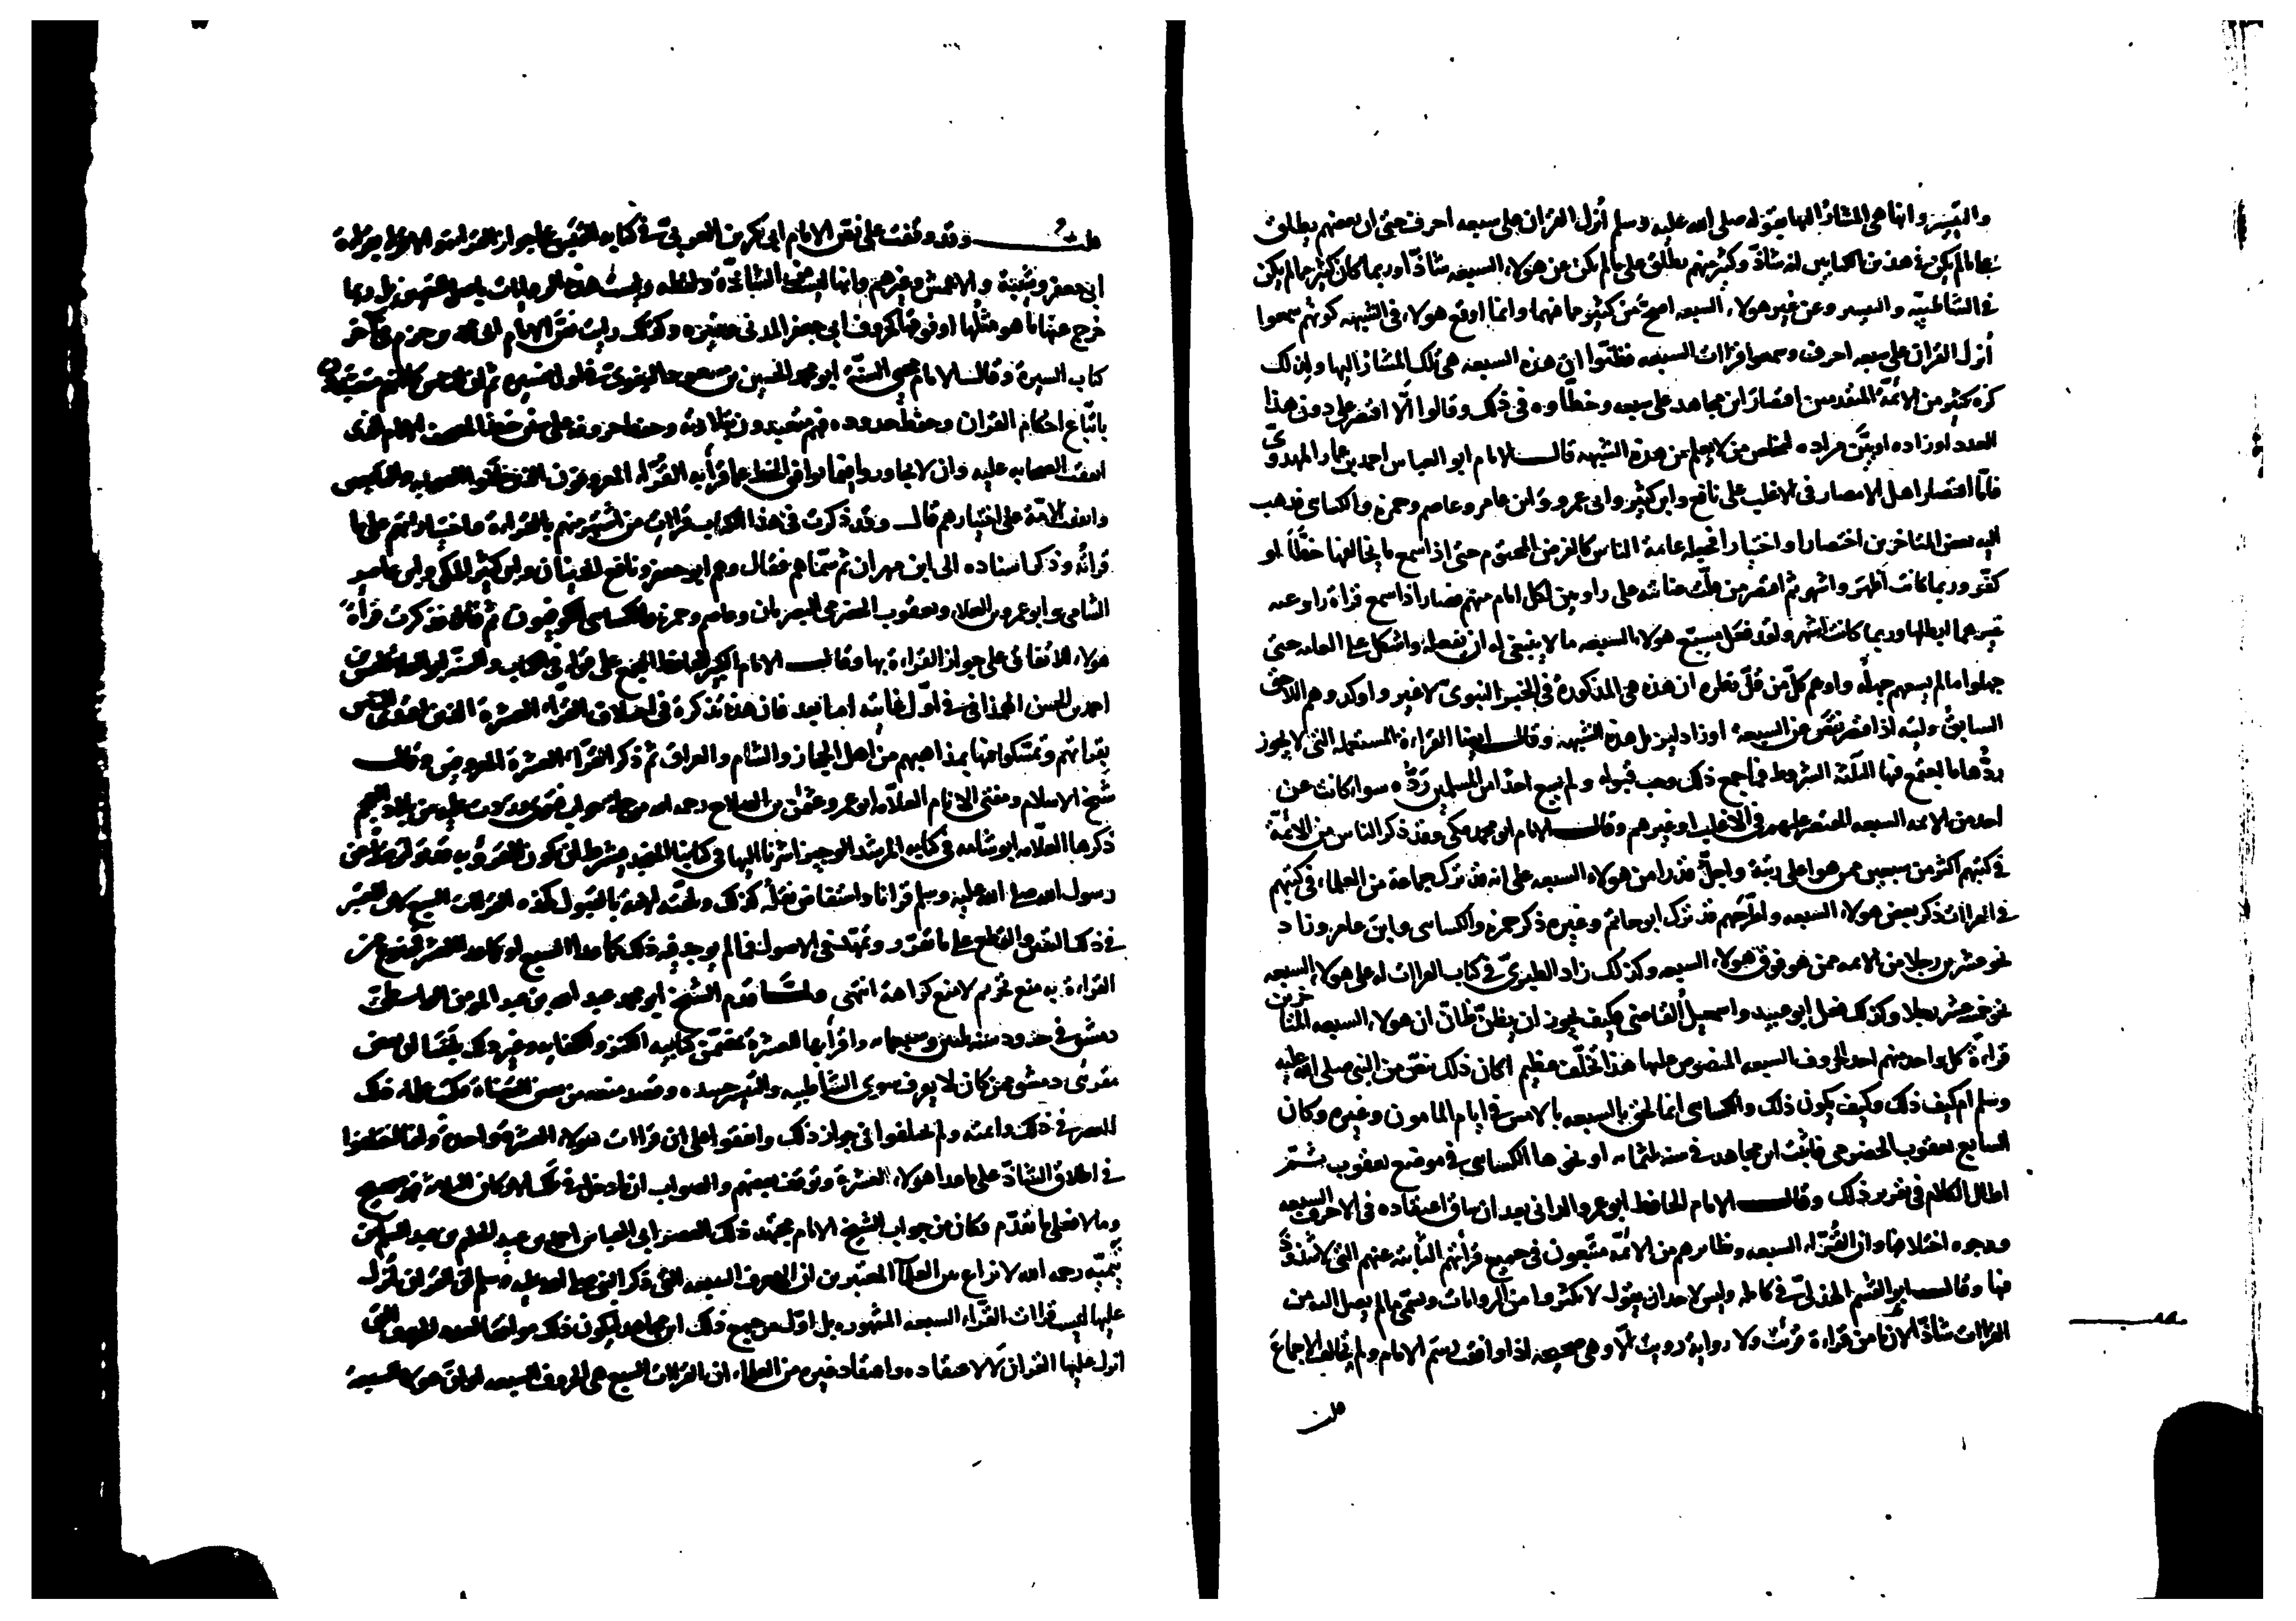 والتيسير وانها هي المشار اليها بقوله صلى الله عليه وسلم أُنزل القرآن على سبعه احرف حتى ان بعضهم يطلق
على ما لم يكن في هذين الكتابين انه شاذ وكثير منهم يطلق على ما لم يكن عن هولاء السبعه شاذّا وربما كان كثير مما لم يكن
في الشاطبيّه والتيسير وعن غير هولاء السبعه اصح من كثير مما فيهما وانما اوقع هولاء في الشبهه كونهم سمعوا
أنزل القران على سبعه احرف وسمعوا قراات السبعه فظنّوا ان هذه السبعه هي تلك المشار اليها ولذلك
كره كثير من الائمّة المتقدمين اقتصار ابن مجاهد على سبعه وخطّاوه في ذلك وقالوا ألّا اقتصر على دون هذا
العدد او زاده او بيّن مراده ليخلص من لا يعلم من هذه الشبهه قال الامام ابو العباس احمد بن عمار المهدويّ
فامّا اقتصار اهل الامصار في الاغلب على نافع وابن كثير وابي عمرو وابن عامر وعاصم وحمزه والكسائي فذهب
اليه بعض المتاخرين اختصارا واختيارا فجعله عامة الناس كالفرض المحتوم حتى اذا سمع ما يخالفها خطّأ او
كفّر وربما كانت اظهر واشهر ثم اقتصر من قلّت عنايته على راويين لكل امام منهم فصار اذا سمع قراة راو عنه
غيرهما ابطلها وربما كانت اشهر ولقد فعل مسبّع هولاء السبعه ما لا ينبغي له ان يفعله واشكل على العامه حتى
جهلوا ما لم يسعهم جهله واوهم كلّ من قلّ نظره ان هذه هي المذكورة في الخبر النبويّ لا غير واكد وهم اللاحق
السابق وليته اذ اقتصر نقص عن السبعة او زاد ليزيل هذه الشبهه وقال ايضا القراءة المستعمله التي لا يجوز
ردّها ما اجتمع فيها الثلثة الشروط فما جمع ذلك وجب قبوله ولم يسع احدًا من المسلمين ردّه سواء كانت عن
احد من الائمه السبعه المقتصر عليهم في الاغلب او غيرهم وقال الامام ابو محمد مكي وقد ذكر الناس من الائمّة
في كتبهم اكثر من سبعين ممن هو اعلى رتبة واجلّ قدرا من هولاء السبعه على انه قد ترك جماعة من العلماء في كتبهم
في القراات ذكر بعض هولاء السبعه واطّرحهم قد ترك ابو حاتم وغيره ذكر حمزه والكسائي وابن عامر وزاد
نحو عشرين رجلا من الائمه ممن هو فوق هولاء السبعه وكذلك زاد الطبريّ في كتاب القراات له على هولاء السبعه
نحو خمسه عشر رجلا وكذلك فعل ابو عبيد واسمعيل القاضي فكيف يجوز ان يظنّ ظانّ ان هولاء السبعه المتاخرين
قراءة كل واحد منهم احد الحروف السبعه المنصوص عليها هذا تخلّف عظيم اكان ذلك بنصّ من النبي صلى الله عليه
وسلم ام كيف ذلك وكيف يكون ذلك والكسائي انما الحق بالسبعه بالامس في ايام المامون وغيره وكان
السابع يعقوب الحضرمي فاثبت ابن مجاهد في سنه ثلثمائه او نحوها الكسائي في موضع يعقوب ثم
اطال الكلام في تقرير ذلك وقال الامام الحافظ ابو عمرو الداني بعد ان ساق اعتقاده في الاحرف السبعه
ووجوه اختلافها وان القُرّاء السبعه ونظايرهم من الائمّة متّبعون في جميع قرأتهم الثابتة عنهم التي لا شذوذ
فيها وقال ابو القسم الهذليّ في كامله وليس لاحد ان يقول لا تكثروا من الروايات ويسمّي ما لم يصل اليه من
القراات شاذّا لانّ ما من قراءة قرئت ولا رواية رويت الّا وهي صحيحه اذا وافقت رسم الامام ولم تخالف الاجماع
قلت
قلتُ وقد وقفت على نصّ الامام ابي بكر بن العربيّ في كتابه القبس على جواز القراءة والاقراء بقراءة
ابي جعفر وشيبة والاعمش وغيرهم وانها ليست من الشاذّة ولفظه وليست هذه الروايات باصل للتعيين بل ربما
خرج عنها ما هو مثلها او فوقها كحروف ابي جعفر المدني وغيره وكذلك رايت نصّ الامام ابي محمد بن حزم في آخر
كتاب السيرة وقال الامام محيي السنّة ابو محمد الحسين بن مسعود البغويّ في اول تفسيره ثم ان الناس كما انهم متعبدون
باتّباع احكام القران وحفظ حدوده فهم متعبدون بتلاوته وحفظ حروفه على سنن خط المصحف الامام الذي
اتفقت الصحابه عليه وان لا يجاوزوا فيما يوافق الخط عما قرأ به القُرّاء المعروفون الذين خلفوا الصحابه والتابعين
واتفقت الامّة على اختيارهم قال وقد ذكرت في هذا الكتاب قراات من اشتهر منهم بالقراءة واختياراتهم على ما
قراتُه وذكر اسناده الى ابن مهران ثم سمّاهم فقال وهم ابو جعفر ونافع المدنيان وابن كثير المكي وابن عامر
الشامي وابو عمرو بن العلاء ويعقوب الحضرمي البصريان وعاصم وحمزة والكسائي الكوفيون ثم قال فذكرت قرأة
هولاء للاتفاق على جواز القراءة بها وقال الامام الكبير الحافظ المجمع على قوله في الكتاب والسنّة ابو العلا
احمد بن الحسن الهمذاني في اوّل غايته اما بعد فان هذه تذكرة في اختلاف القرّاء العشرة الذين اقتدى الناس
بقراتهم وتمسّكوا فيها بمذاهبهم من اهل الحجاز والشام والعراق ثم ذكر القرّاء العشرة المعروفين وقال
شيخ الاسلام ومفتي الانام العلّامه ابو عمرو عثمان بن الصلاح رحمه الله من جملة جواب فتوى وردت عليه من بلاد العجم
ذكرها العلّامه ابو شامه في كتابه المرشد الوجيز اشرنا اليها في كتابنا المنجد يشترط ان يكون المقروء به قد تواتر نقله عن
رسول الله صلى الله عليه وسلم قرانا واستفاض نقله كذلك وتلقته الامة بالقبول كهذه القراات السبع لان المعتبر
في ذلك اليقين والقطع على ما تقرر وتمهّد في الاصول فما لم يوجد فيه ذلك كما عدا السبع او كما عدا العشر فممنوع من
القراءة به منع تحريم لا منع كراهة انتهى ولمّا قدم الشيخ ابو محمد عبد الله بن عبد المومن الواسطيّ
دمشق في حدود سنه ثلثين وسبعمايه واقرأ بها للعشرة بمضمّن كتابيه الكنز والكفايه وغير ذلك بلغنا ان بعض
مقرئي دمشق ممن كان لا يعرف سوى الشاطبيه والتيسير حسده وقصد منعه من بعض القضاة فكتب علماء ذلك
العصر في ذلك وائمته ولم يختلفوا في جواز ذلك واتفقوا على ان قراات هولاء العشرة واحدة وانما اختلفوا
في اطلاق الشاذّ على ما عدا هولاء العشرة وتوقف بعضهم والصواب ان ما دخل في تلك الاركان الثلاثة فهو صحيح
وما لا فعلى ما تقدّم وكان من جواب الشيخ الامام مجتهد ذلك العصر ابي العباس احمد بن عبد الحليم بن عبد السلم بن
تيميّه رحمه الله لا نزاع بين العلمآ المعتبرين ان الاحرف السبعه التي ذكر النبي صلى الله عليه وسلم ان القران أُنزل
عليها ليست قراات القُرّاء السبعه المشهوره بل اوّل من جمع ذلك ابن مجاهد ليكون ذلك موافقا لعدد الحروف التي
انزل عليها القران لا لاعتقاده واعتقاد غيره من العلماء ان القراات السبع هي الحروف السبعه او ان هولاء السبعة